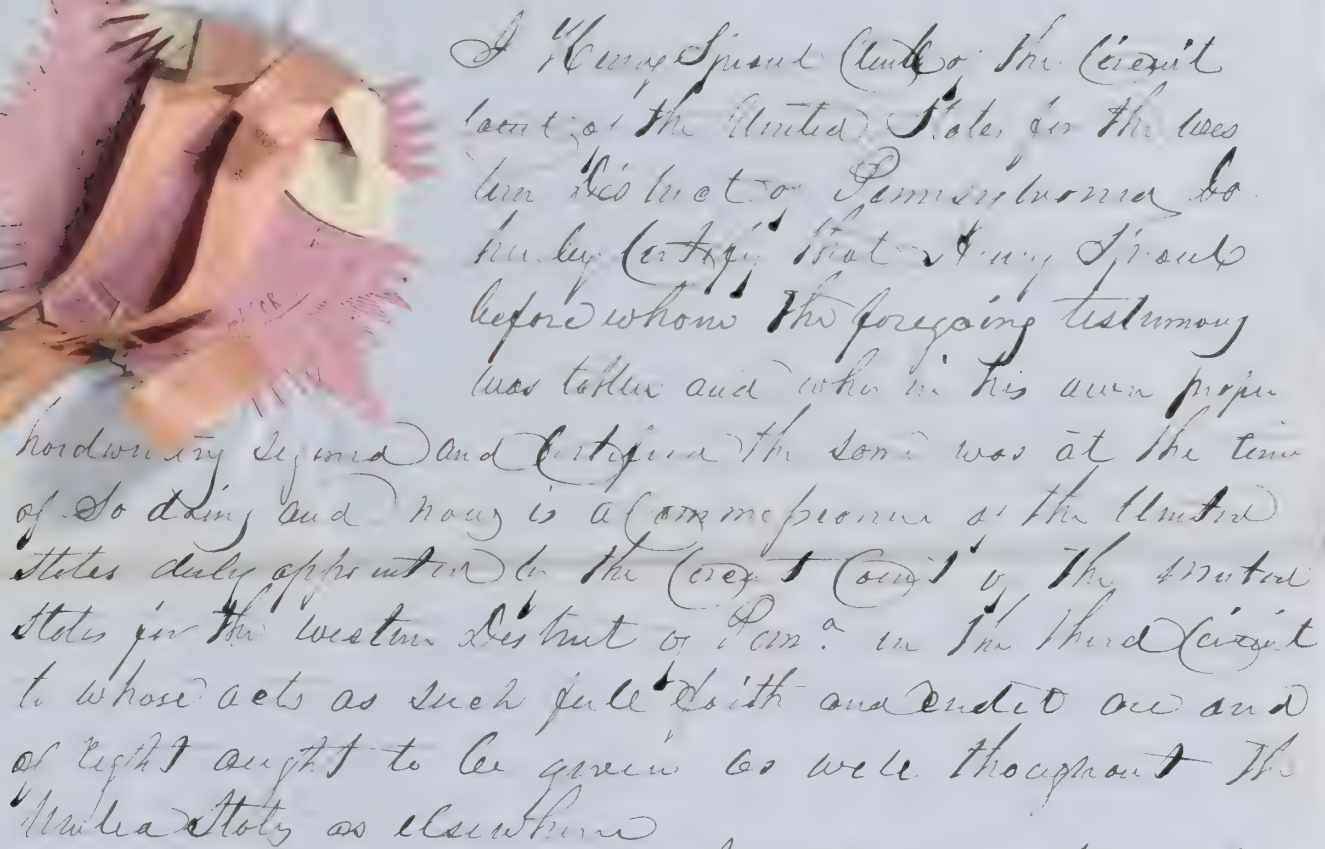 I Henry Sproul Clerk of the Circuit
Court of the United States for the wes
tern District of Pennsylvania do
hereby Certify that Henry Sproul
before whom the foregoing testimony
was taken and who in his own proper
handwriting signed and Certified the same was at the time
of so doing and now is a Commissioner of the United
States duly appointed by the Circuit Court of the United
States for the western District of Penna in the third Circuit
to whose acts as such full faith and credit are and
of right ought to be given as well thoughout the
United States as elsewhere